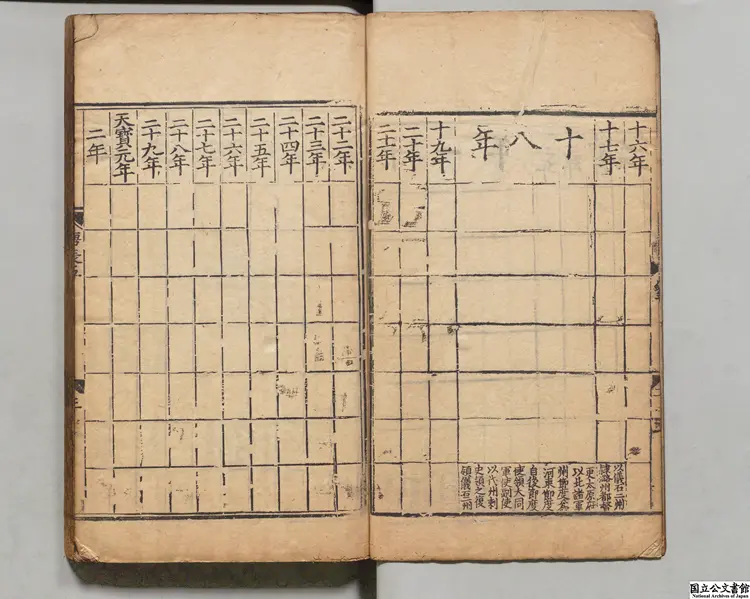 十六年
十七年
十八年
十九年
二十年
二十一年
以儀石二州
隸潞州都督
更太原府
以北諸軍
州節度為
河東節度
自後節度
使領大同
軍使副使
以代州刺
史領之復
領儀石二州
二十二年
二十三年
二十四年
二十五年
二十六年
二十七年
二十八年
二十九年
天寶元年
二年
国立公文書館
National Archives of Japan